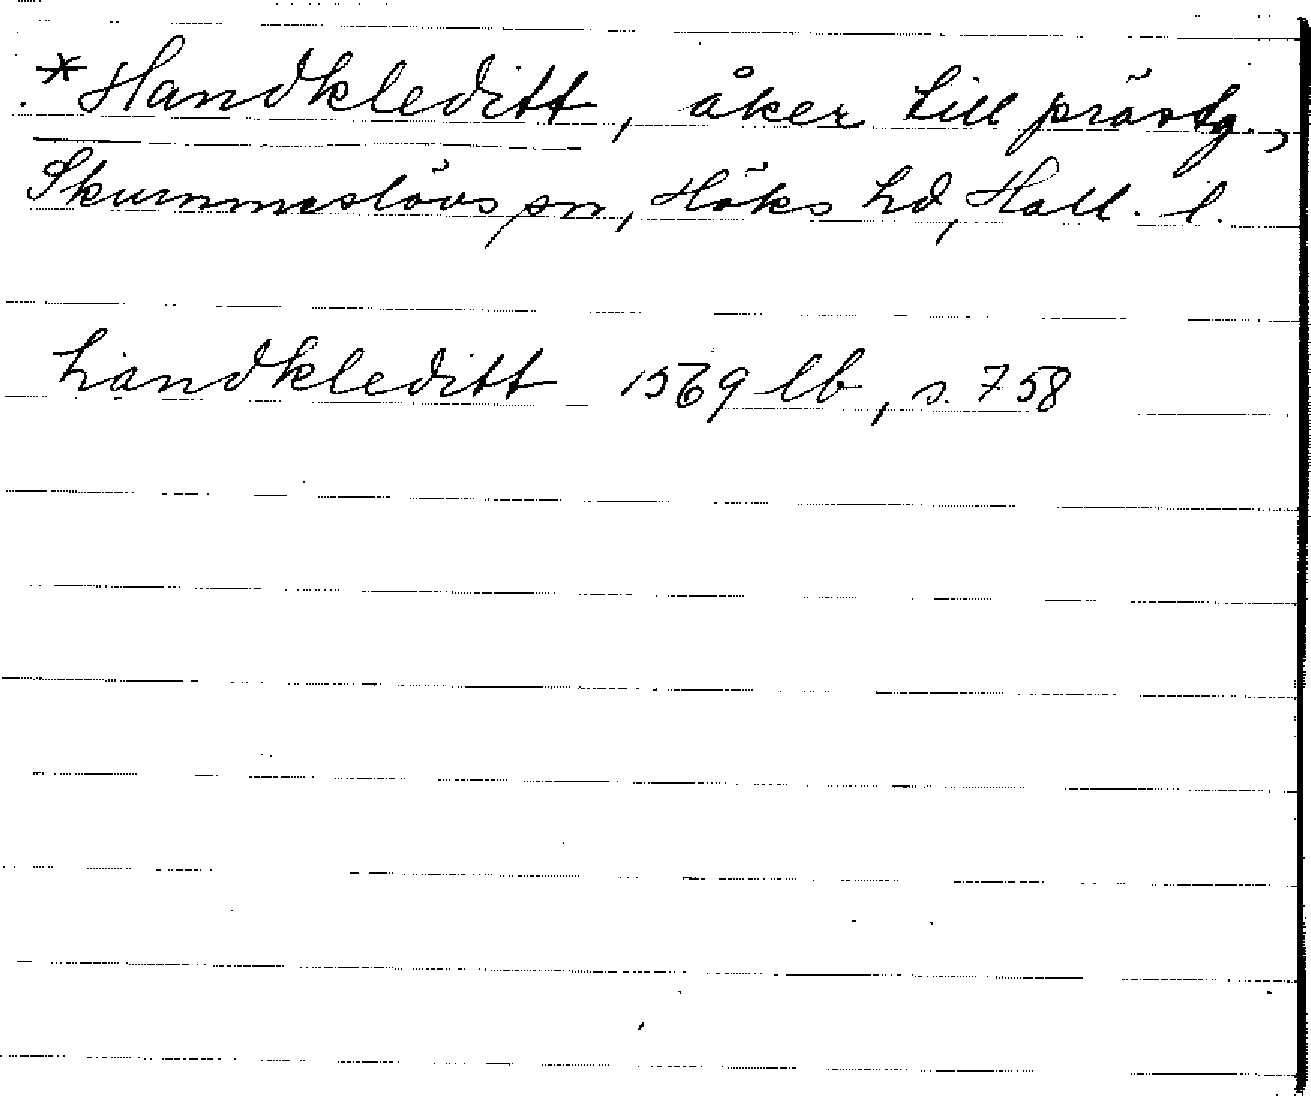 *Handkleditt, åker till prästg.,
Skummeslövs sn, Höks hd, Hall. l.
handkleditt 1569 lb, s. 758